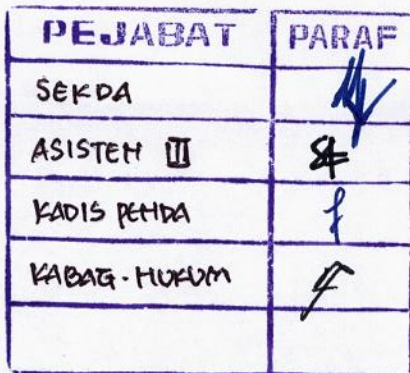 PEJABAT PARAF
SEKDA
ASISTEN III
KADIS PENDA
KABAG. HUKUM